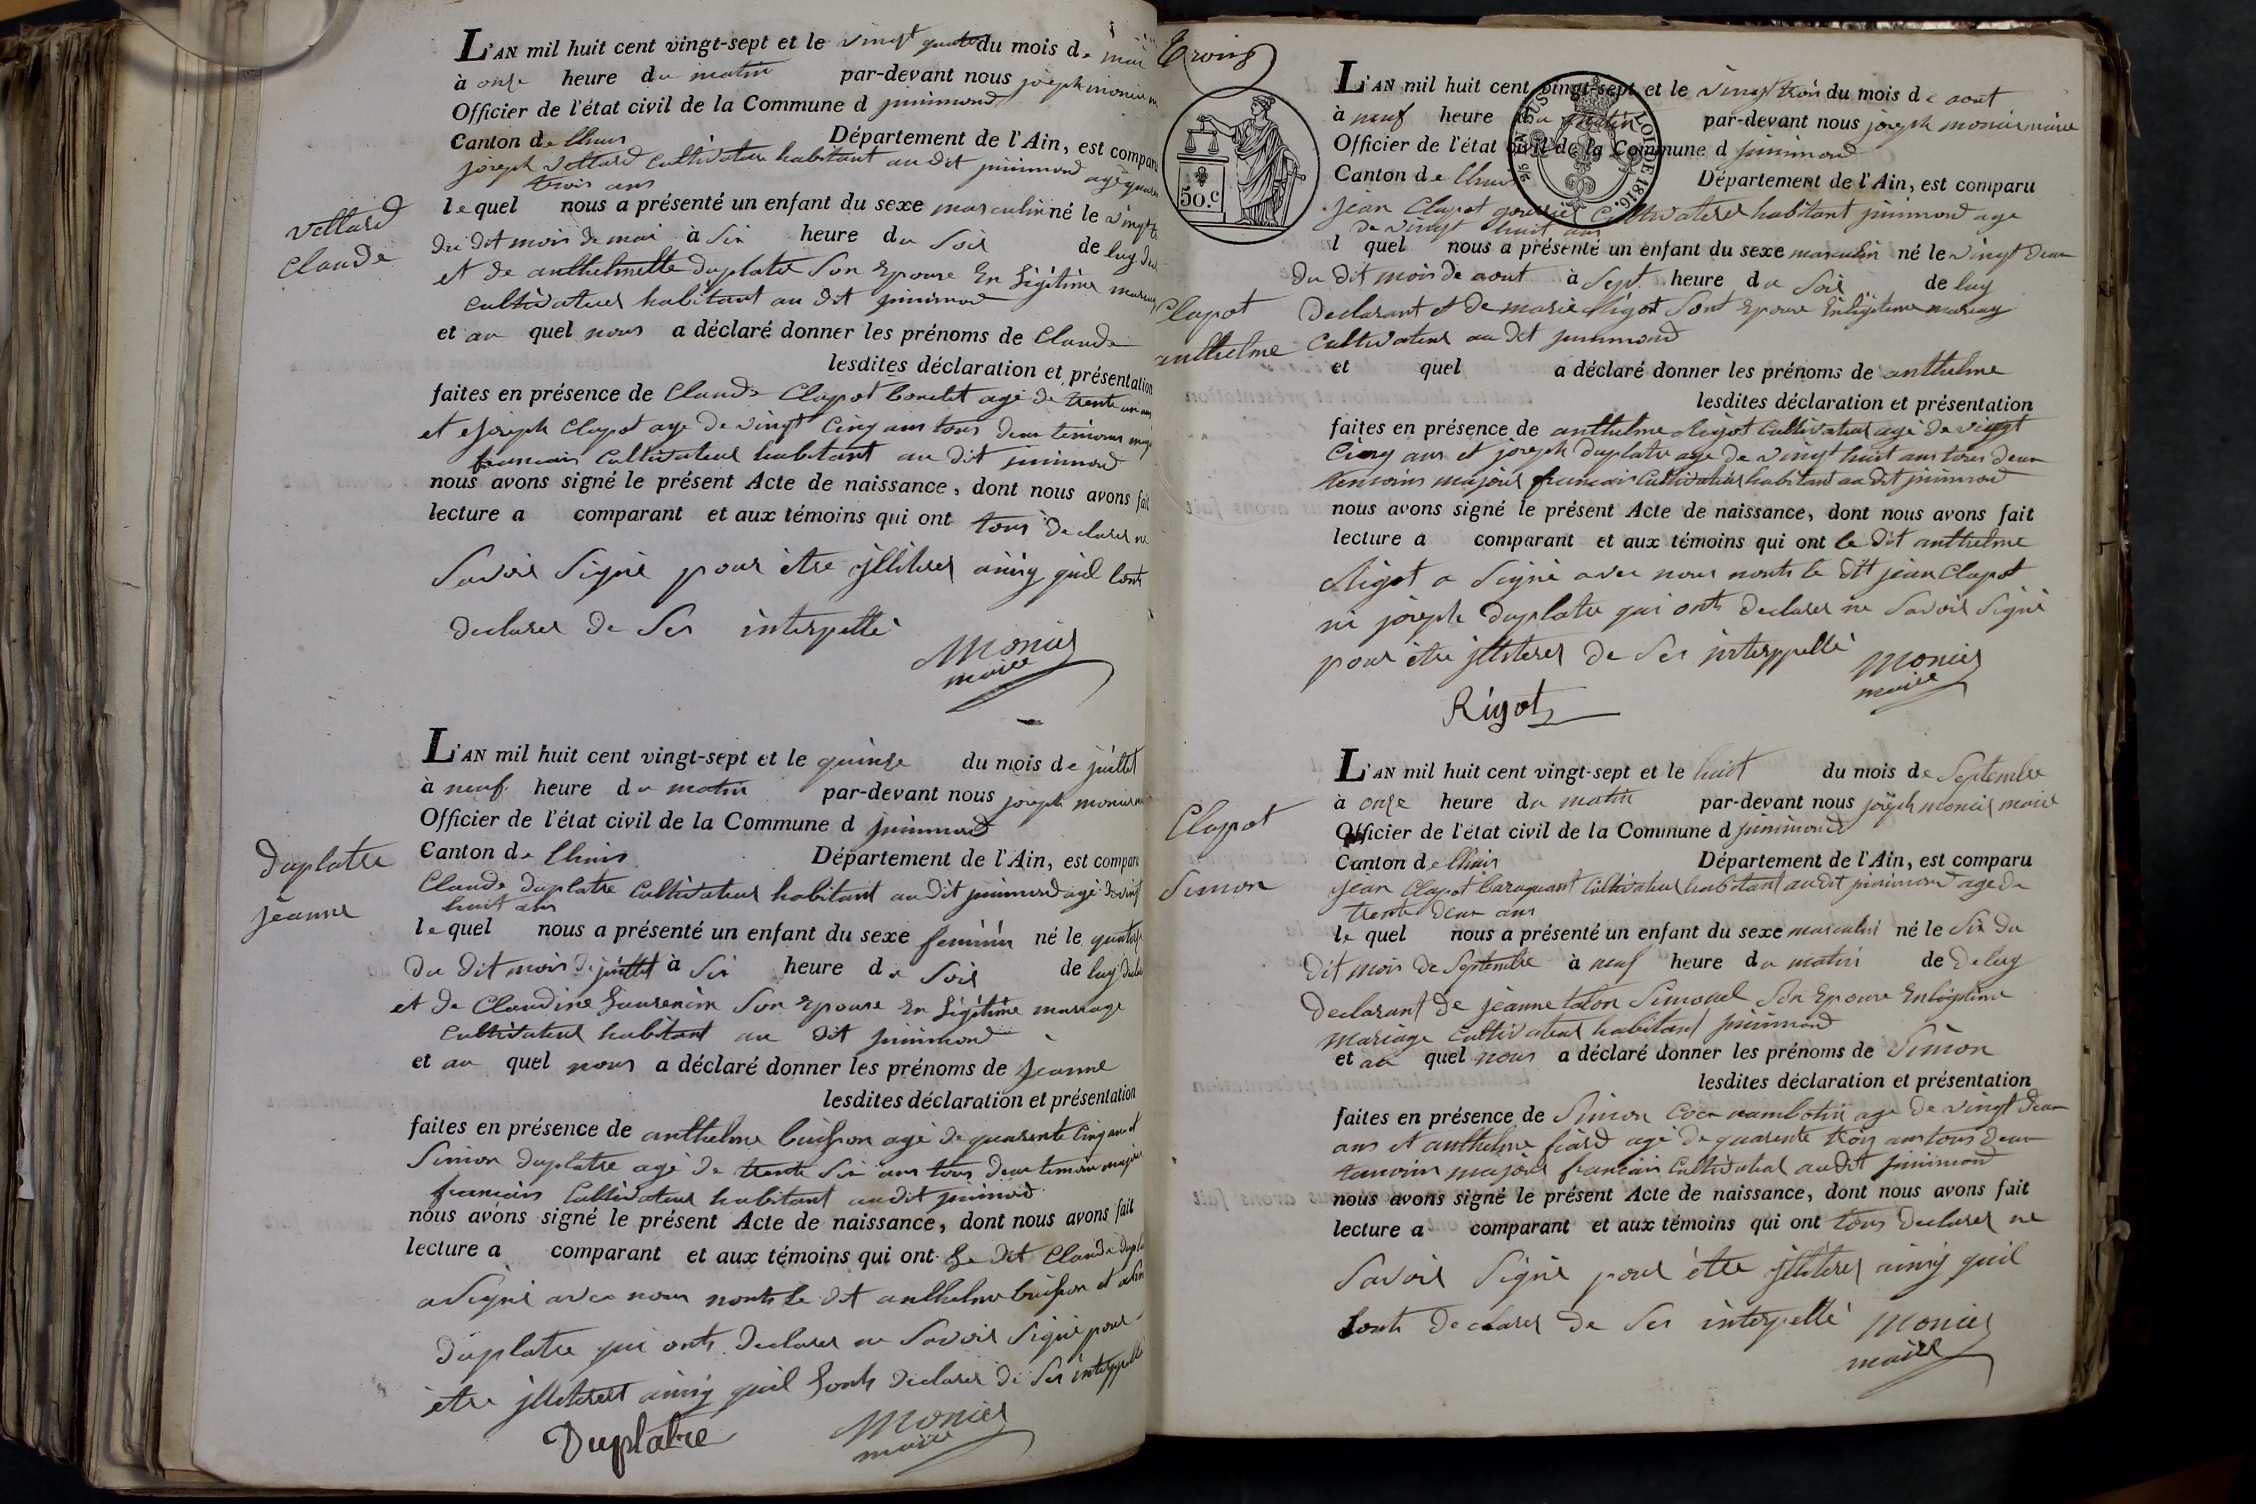 L'AN mil huit cent vingt-sept et le vingt quatre du mois de mai
à onse heure du matin par-devant nous joseph monier
Officier de l'état civil de la Commune d jnnimond
Canton de lhuis Département de l'Ain, est comparu
joseph vettard cultivateur habitant au dit jnnimond agé
trois ans
vettard
claude
le quel nous a présenté un enfant du sexe masculin né le vingt
du dit mois de mai à Six heure du Soir de luy
et de anthelmette duplatre Son Epouse En Légitime
cultivateur habitant au dit jnnimond
et au quel nous a déclaré donner les prénoms de Claude
lesdites déclaration et présentation
faites en présence de Claude Clapot agé de trente
et joseph Clapot age de vingt Cinq ans tous deux temoins
francais Cultivateur habitant au dit jnnimond
nous avons signé le présent Acte de naissance, dont nous avons fait
lecture a comparant et aux témoins qui ont tous declarer ne
Savoir Signé pour être jlliterer ainsy quil lont
declarer de Ser interpellé
Monier
maire
L'AN mil huit cent vingt-sept et le quinse du mois de juillet
à neuf heure du matin par-devant nous joseph monier
Officier de l'état civil de la Commune d jnnimond
Duplatre
jeanne
Canton de lhuis Département de l'Ain, est comparu
Claude Duplatre Cultivateur habitant au dit jnnimond agé de vingt
huit ans
le quel nous a présenté un enfant du sexe feminin né le quatorse
du dit mois de juillet à Six heure du Soir de luy
et de Claudine Laurencin Son Epouse En Légitime mariage
Cultivateur habitant au dit jnnimond
et au quel nous a déclaré donner les prénoms de jeanne
lesdites déclaration et présentation
faites en présence de anthelme buisson agé de quarente Cinq ans et
Simon duplatre agé de trente Six ans tous deux temoins majeur
francais Cultivateur habitant au dit jnnimond
nous avons signé le présent Acte de naissance, dont nous avons fait
lecture a comparant et aux témoins qui ont Le dit Claude
a Signé avec nous nonts le dit anthelme buisson et
duplatre qui onts declarer ne Savoir Signé pour
être jlliterer ainsy quil Lonts declarer de Ser interppellé
Duplatre
Monier
maire
L'AN mil huit cent vingt-sept et le vingt trois du mois de aout
à neuf heure du matin par-devant nous joseph monier maire
Officier de l'état civil de la Commune d jnnimond
Canton de lhuis Département de l'Ain, est comparu
50.c
EN SUS
LOI DE 1816.
jean Clapot Cultivateur habitant jnnimond age
de vingt huit ans
l quel nous a présenté un enfant du sexe masculin né le vingt deux
du dit mois de aout à Sept heure du Soir de luy
Clapot
anthelme
Declarant et de marie Rigot Sont Epouse En legitime mariage
Cultivateur au dit jnnimond
et quel a déclaré donner les prénoms de anthelme
lesdites déclaration et présentation
faites en présence de anthelme Rigot Cultivateur agé de vingt
Cinq ans et joseph Duplatre age de vingt huit ans tous deux
temoins majeur francais Cultivateur habitant au dit jnnimond
nous avons signé le présent Acte de naissance, dont nous avons fait
lecture a comparant et aux témoins qui ont le dit anthelme
Rigot a Signé avec nous nonts le dit jean Clapot
ni joseph Duplatre qui onts declarer ne Savoir Signé
pour être jlliterer de Ser interppellé
Monier
maire
Rigot
L'AN mil huit cent vingt-sept et le huit du mois de Septembre
à onse heure du matin par-devant nous joseph monier maire
Officier de l'état civil de la Commune d jnnimond
Clapot
Simon
Canton de lhuis Département de l'Ain, est comparu
jean Clapot Cultivateur habitant au dit jnnimond age de
trente deux ans
le quel nous a présenté un enfant du sexe masculin né le Six du
dit mois de Septembre à neuf heure du matin de De luy
declarant de jeanne talon Simonel Son Epouse En legitime
mariage Cultivateur habitant jnnimond
et au quel nous a déclaré donner les prénoms de Simon
lesdites déclaration et présentation
faites en présence de Simon age de vingt deux
ans et anthelme fiard agé de quarente trois ans tous deux
temoins majeur francais Cultivateur au dit jnnimond
nous avons signé le présent Acte de naissance, dont nous avons fait
lecture a comparant et aux témoins qui ont tous declarer ne
Savoir Signé pour être jlliterer ainsy quil
Lonts declarer de Ser interpellé
Monier
maire